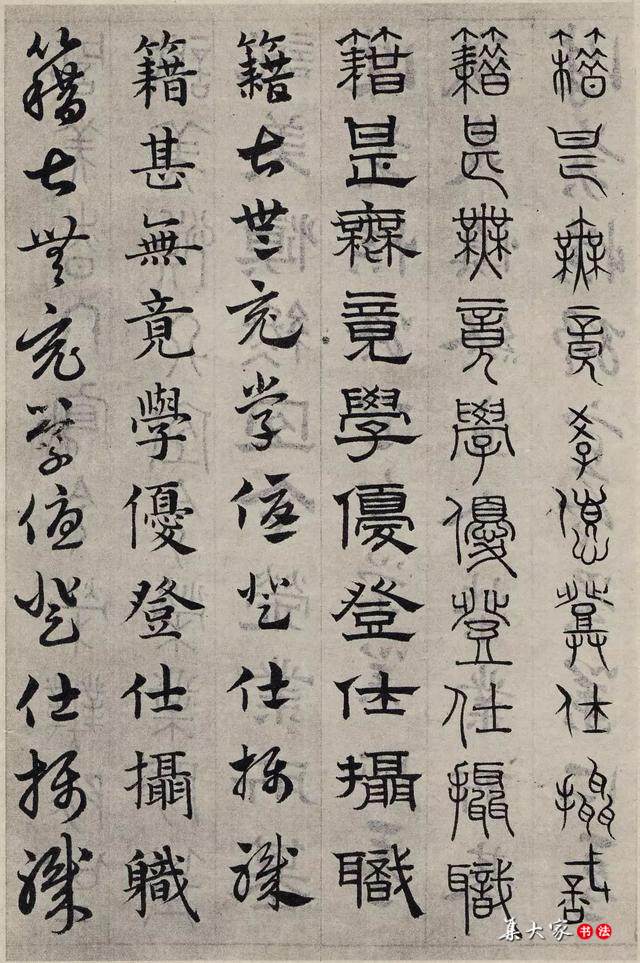 籍甚無竟學優登仕攝職
籍甚無竟學優登仕攝職
籍甚無竟學優登仕攝職
籍甚無竟學優登仕攝職
籍甚無竟學優登仕攝職
籍甚無竟學優登仕攝職
集大家書法